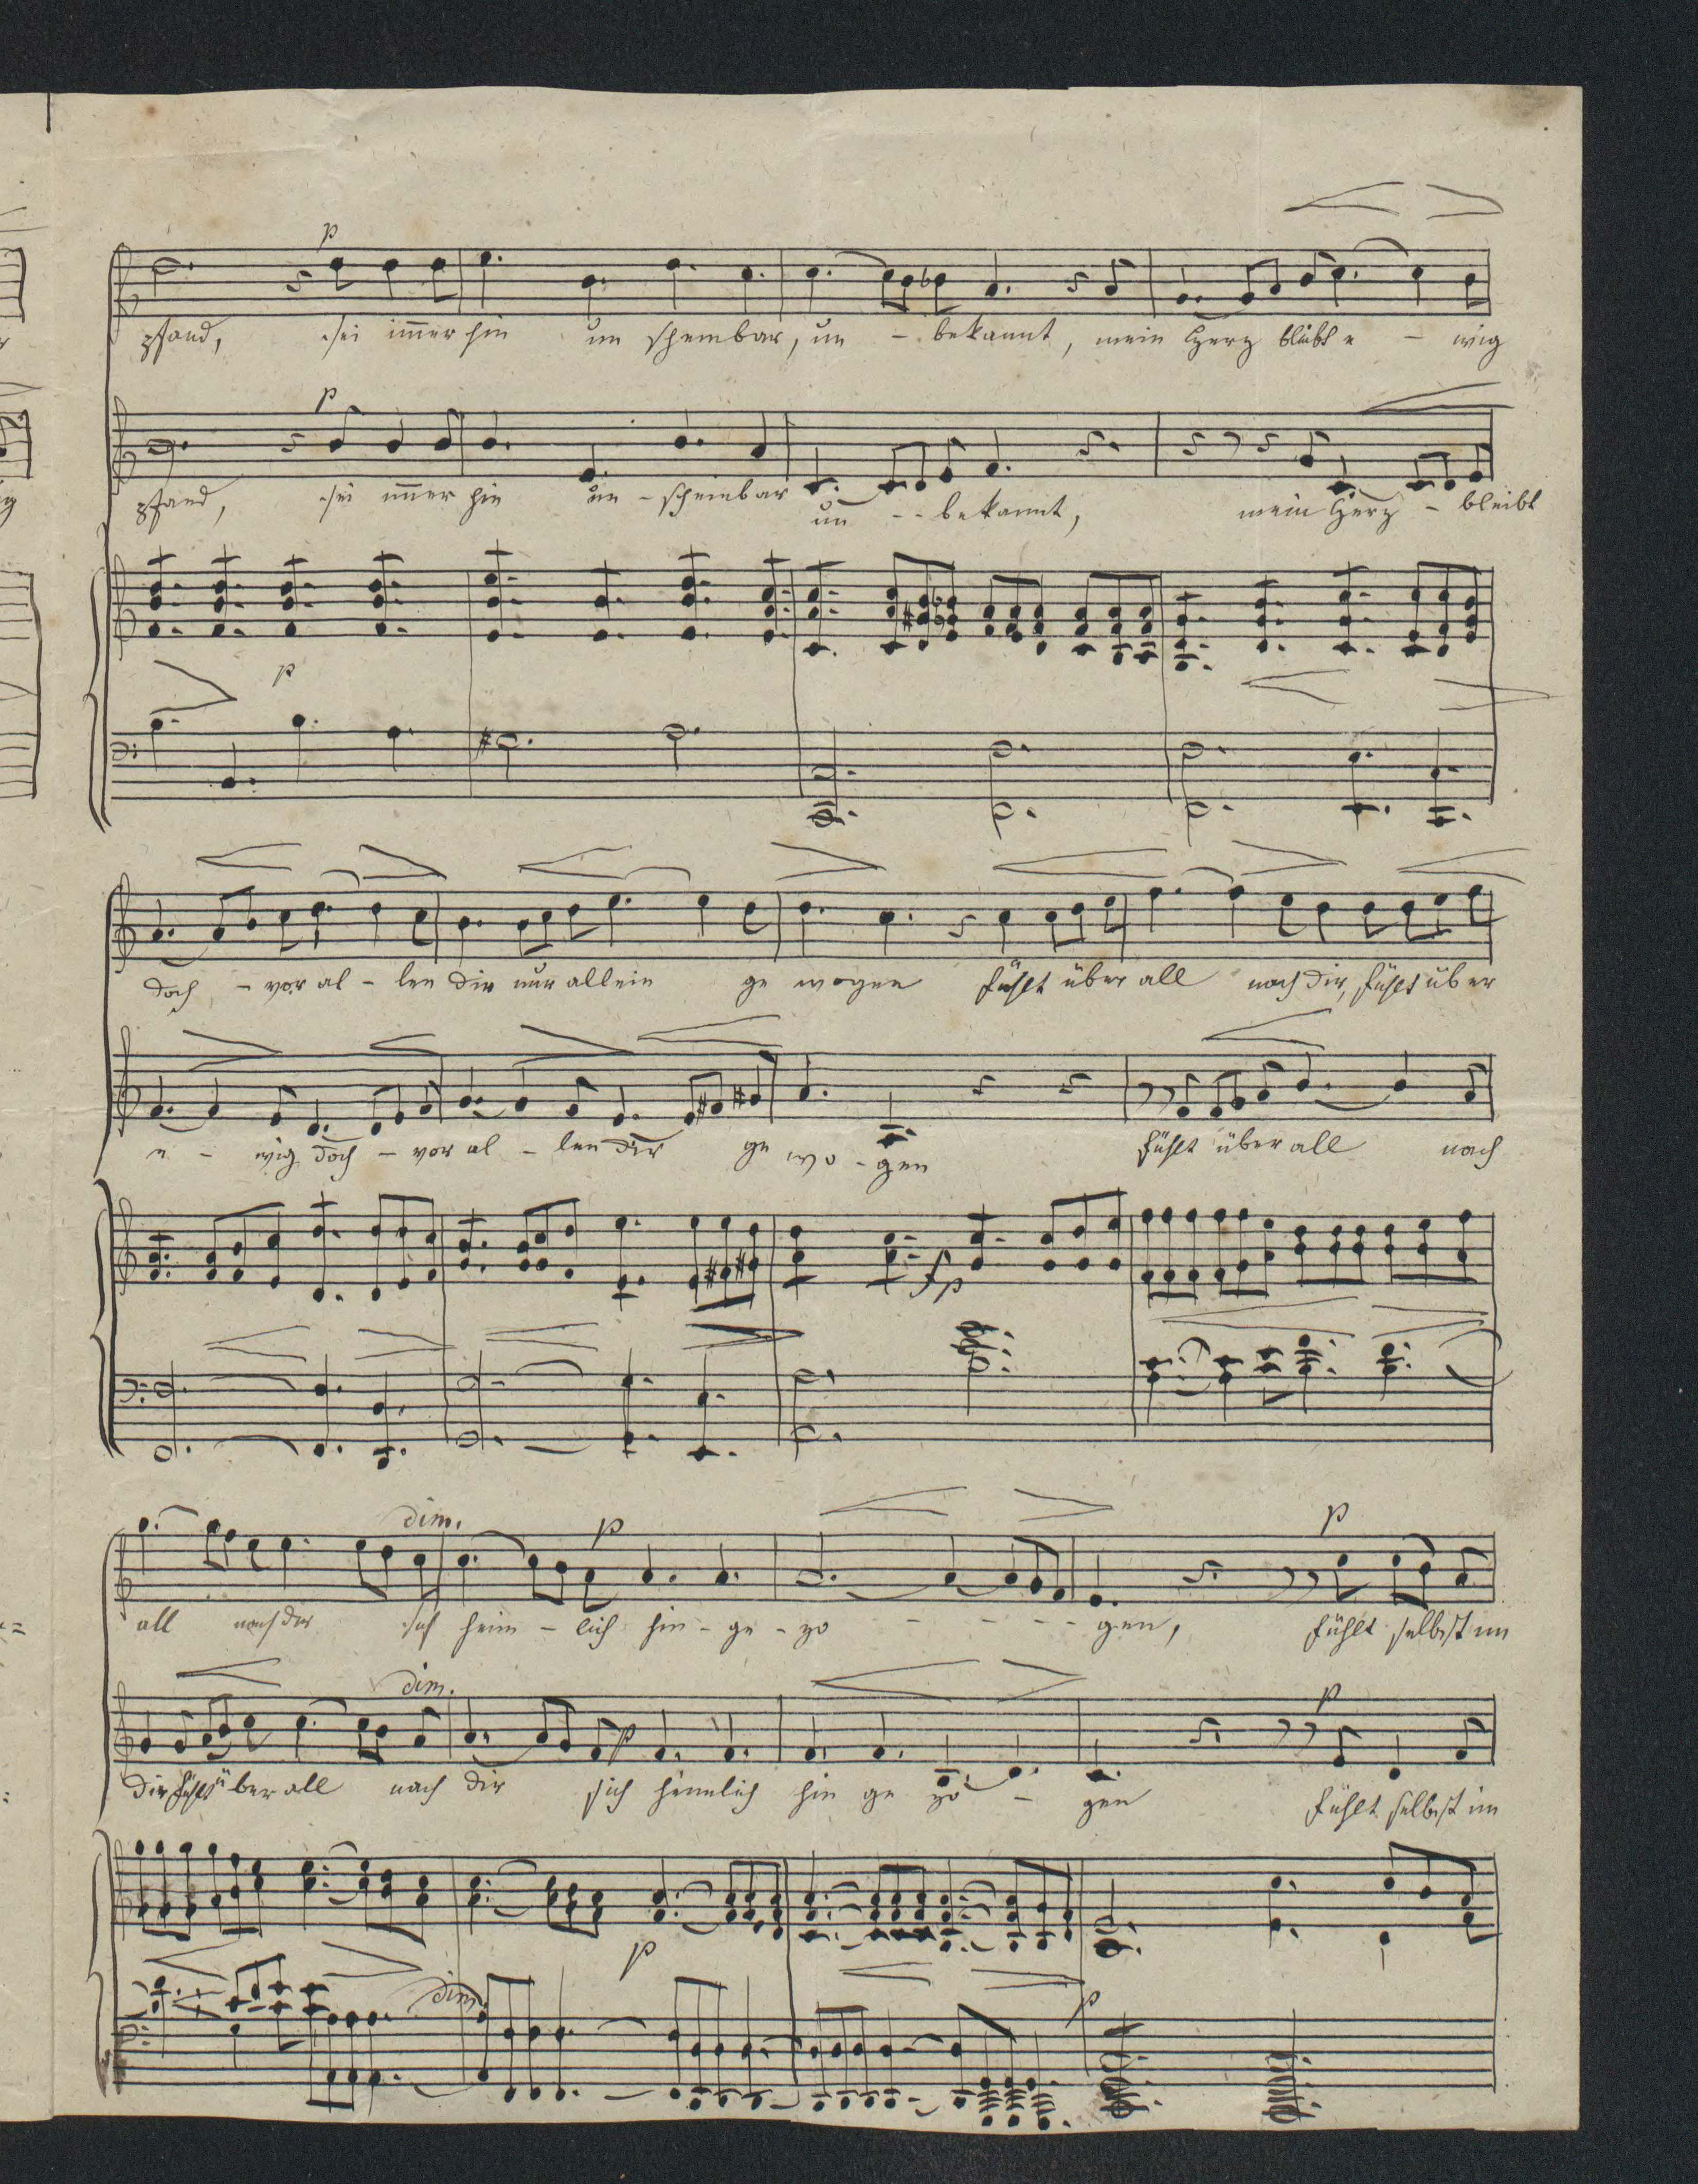 p
pfand, sei im̅er hin un scheinbar, un - bekannt, mein Herz bleibt e - wig
p
pfand, sei im̅er hin un - scheinbar un - - bekannt, mein Herz - bleibt
p
doch - vor al - len dir nur allein ge wogen fühlt über all nach dir, fühlt über
e - wig doch - vor al - len dir ge wo - gen fühlt über all nach
fp
dim. p p
all nach dir sich heim - lich hin - ge - zo - - - - gen, fühlt selbst im
dim. p p
dir fühlt über all nach dir sich heimlich hin ge zo - gen fühlt selbst im
p
dim. p